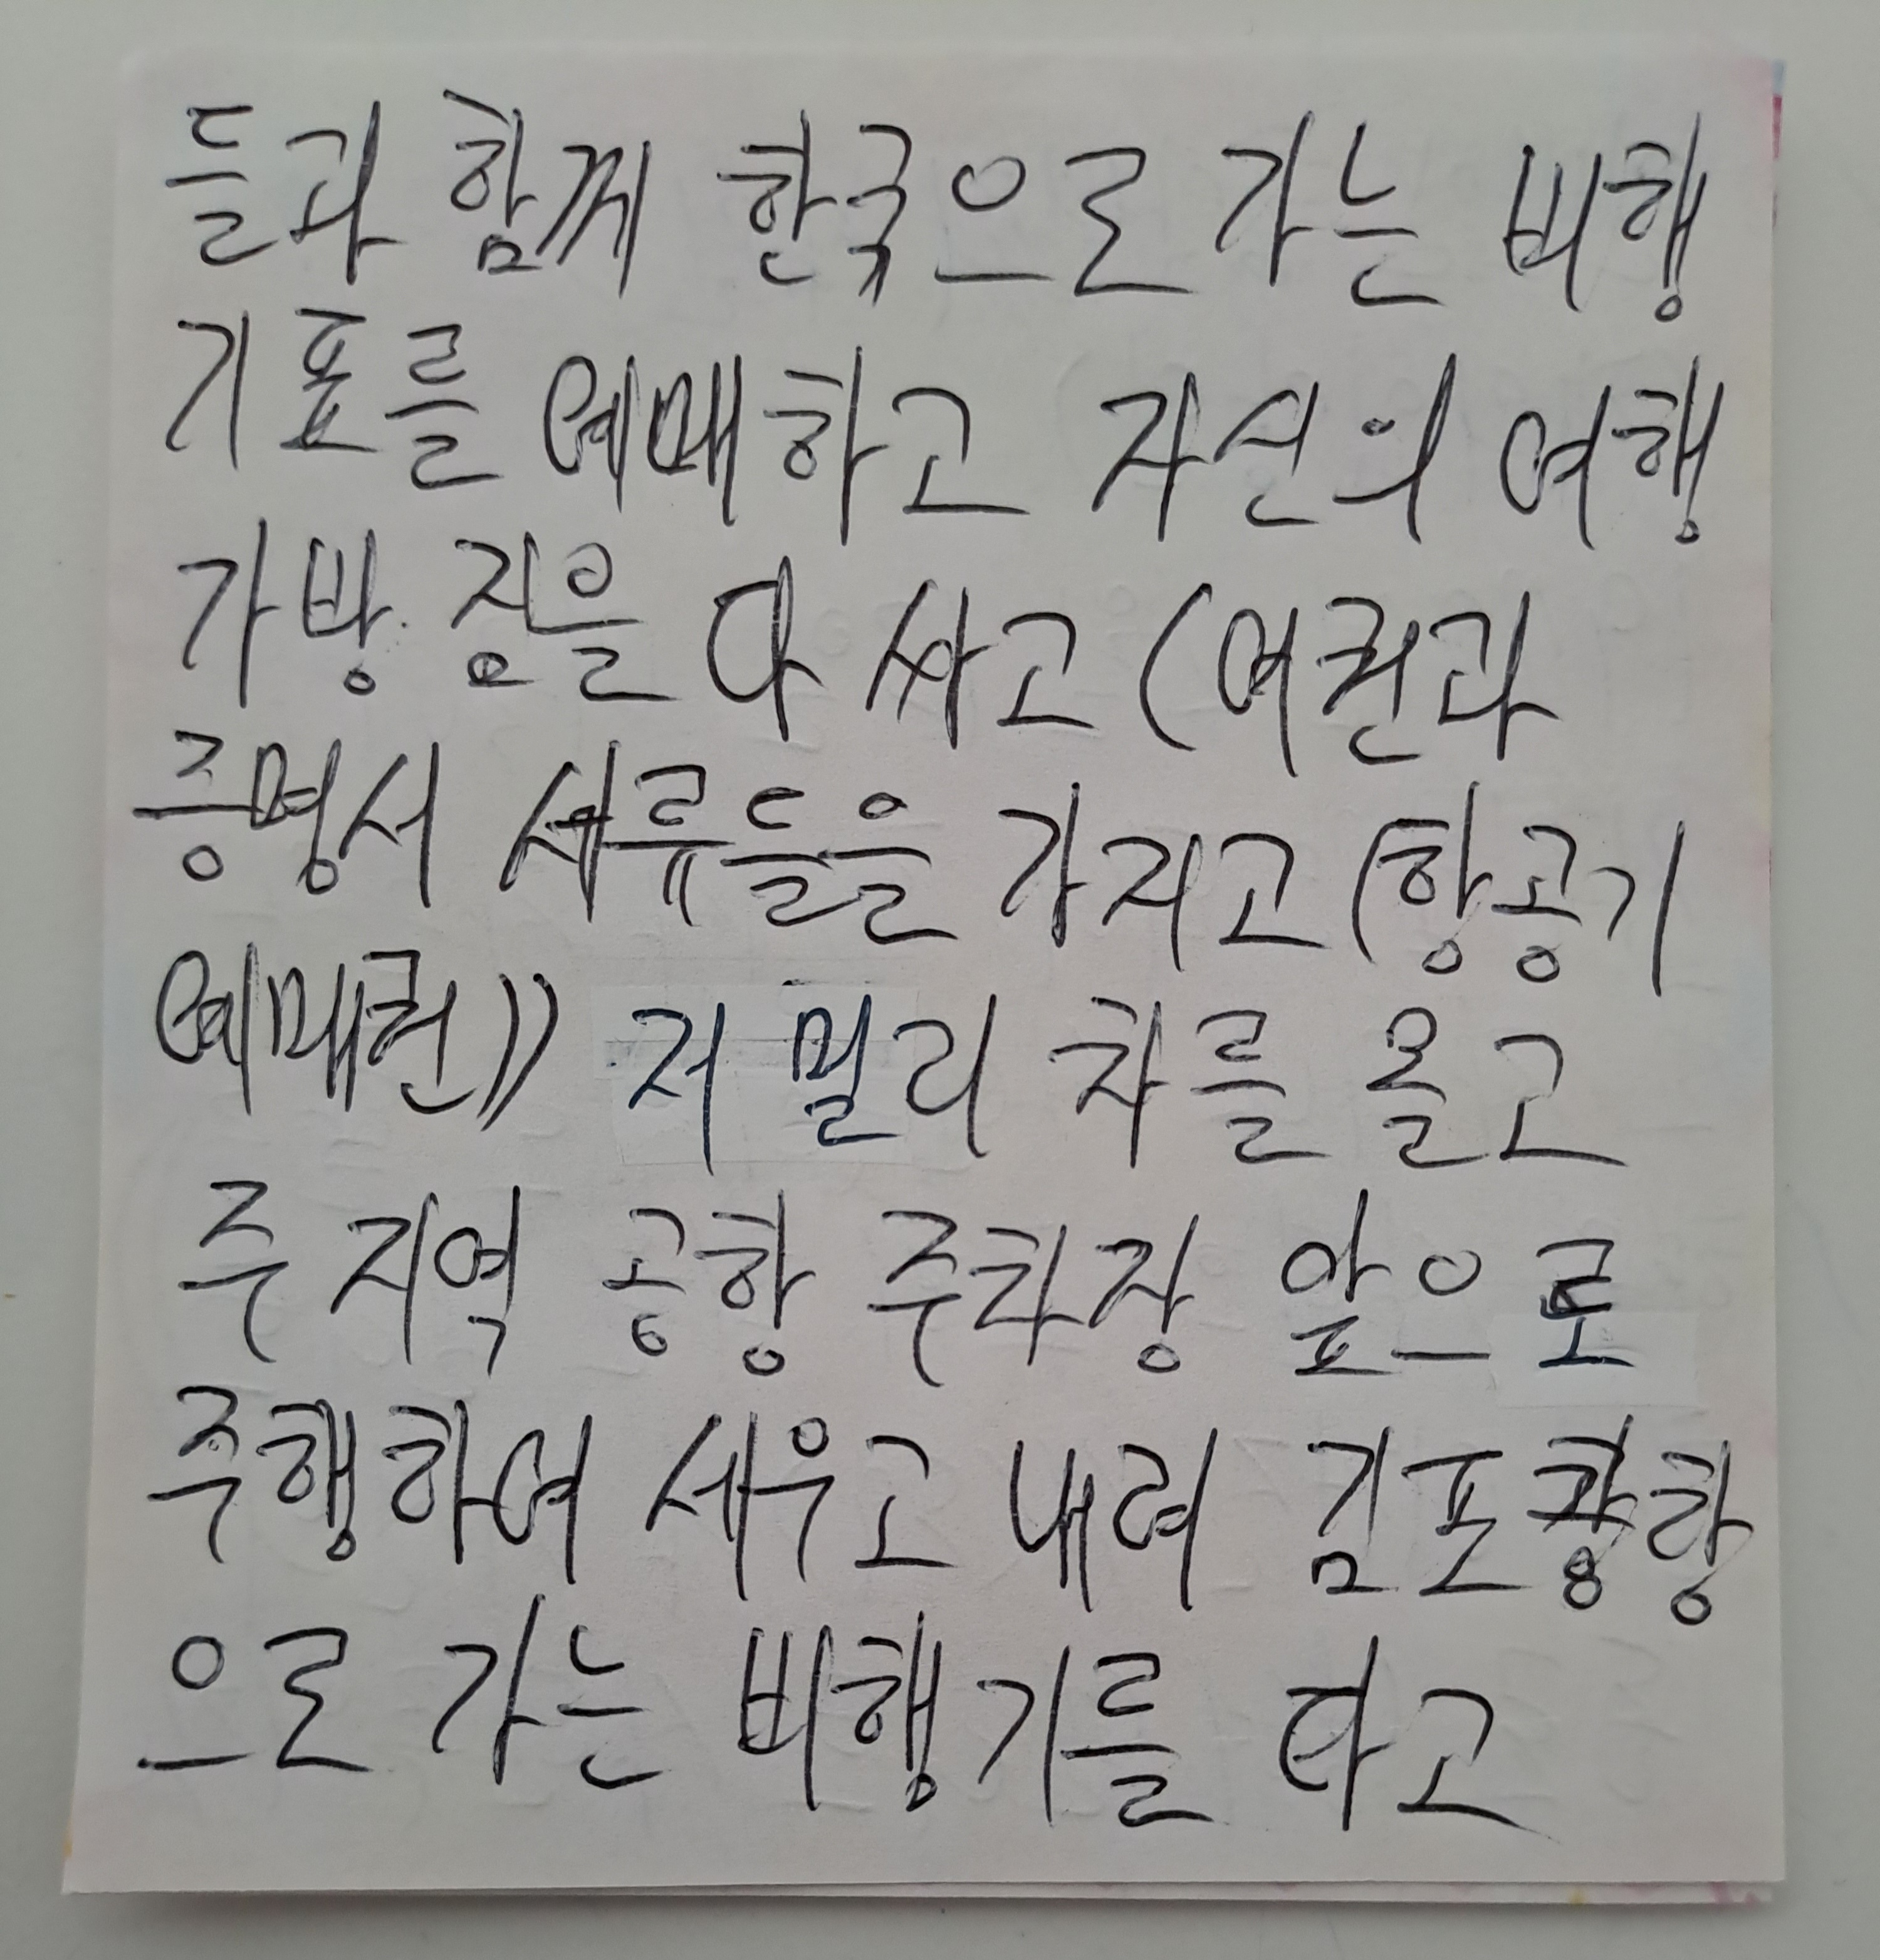 들과 함께 한국으로 가는 비행
기표를 예매하고 자신의 여행
가방 짐을 다 싸고 (여권과
증명서 서류들을 가지고 (항공기
예매권)) 저 멀리 차를 몰고
주 지역 공항 주차장 앞으로
주행하여 세우고 내려 김포공항
으로 가는 비행기를 타고